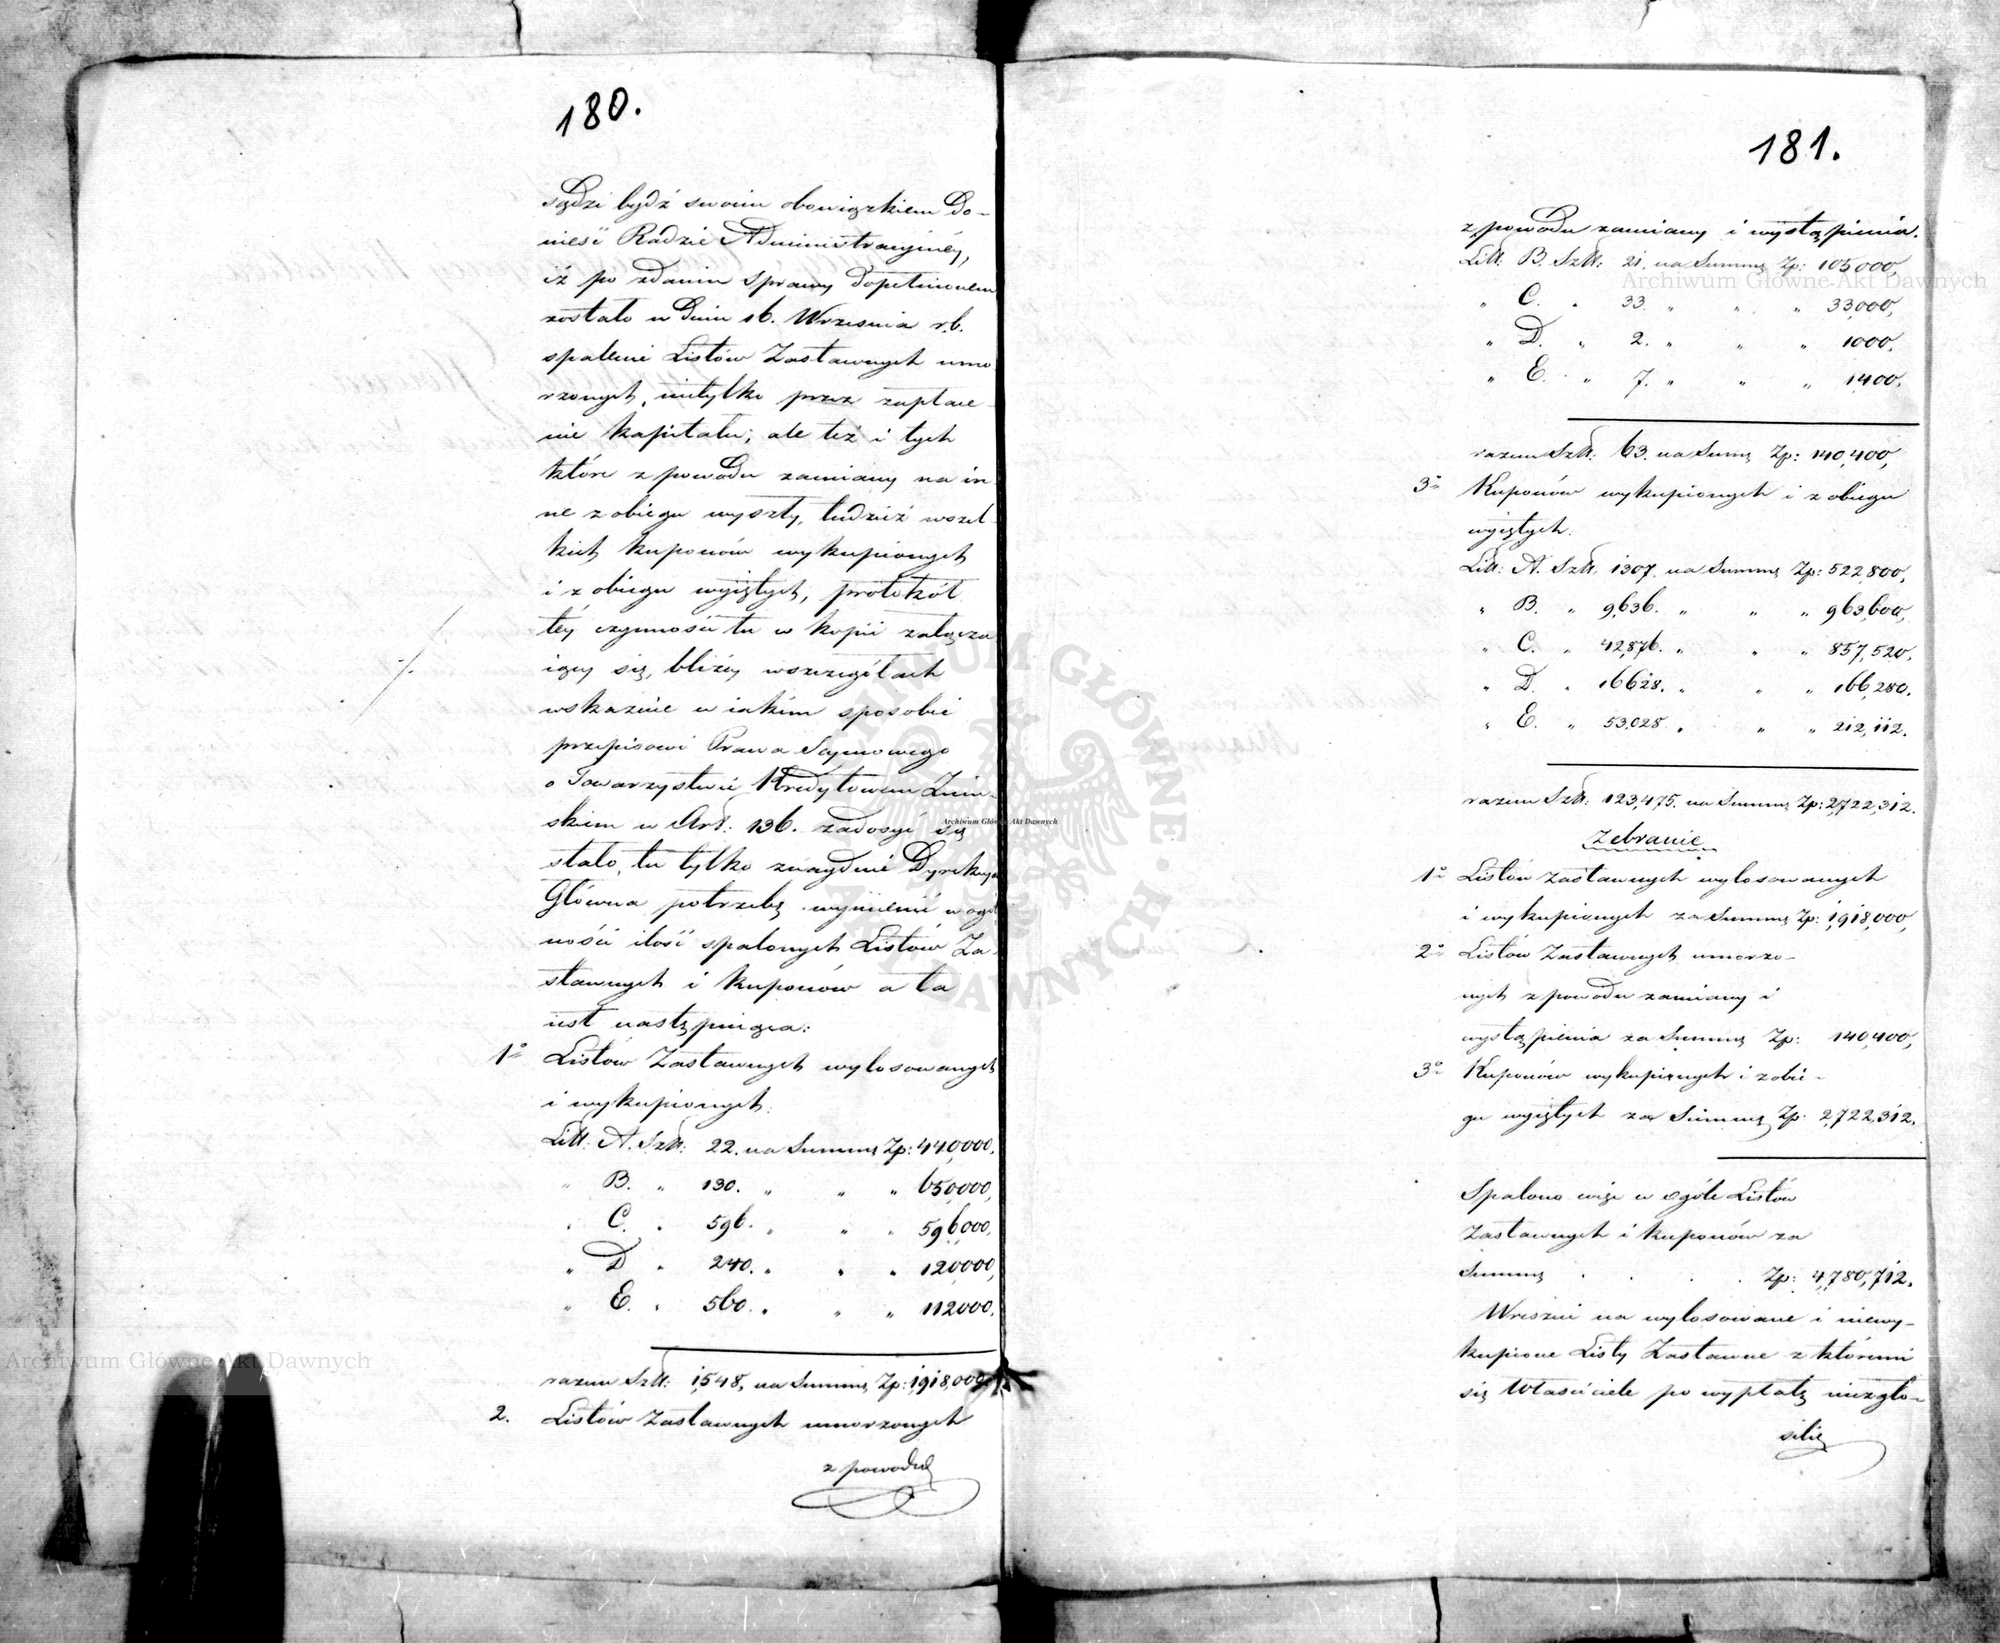 180.
sądzi bydź swoim obowiązkiem do-
nieść Radzie Administracyjney,
iż po zdaniu sprawy dopełnionem
zostało w dniu 16. Września r.b.
spalenie Listów Zastawnych umo
rzonych, nietylko przez zapłace-
nie kapitału, ale też i tych
które z powodu zamiany na in-
ne z obiegu wyszły, tudzież wszel-
kich kuponów wykupionych
i z obiegu wyjętych, protokół
téy czynności tu w kopii załącza
iący się, bliżey wszczegółach
wskazuie w iakim sposobie
przepisowi Prawa Seymowego
o Towarzystwie Kredytowem Ziem-
skiem w Art: 136. zadosyć się
stało, tu tylko znayduie Dyrekcya
Główna potrzebę wymienić w ogól
ności ilość spalonych Listów Za-
stawnych i kuponów a ta
iest następuiąca:
1° Listów Zastawnych wylosowanych
i wykupionych:
Litt: A. Sztt: 22. na Summę Zp: 440,000,
" B. " 130. " " " 650,000,
" C. " 596. " " " 596,000,
" D " 240. " " " 120,000,
" E. " 560. " " " 112,000.
razem Sztt: 1,548, na Summę Zp: 1,918,000.
2. Listów Zastawnych umorzonych
z powodu
181.
z powodu zamiany i wystąpienia.
Litt: B. Sztt: 21. na Summę Zp: 105,000,
" C. " 33. " " " 33,000,
" D. " 2. " " " 1000,
" E. " 7. " " " 1,400.
razem Sztt: 63. na Summę Zp: 140,400,
3° Kuponów wykupionych i z obiegu
wyjętych.
Litt: A. Sztt. 1307. na Summę Zp: 522,800,
" B. " 9,636. " " " 963,600,
" C. " 42,876. " " " 857,520,
" D. " 16628. " " " 166,280.
" E. " 53,028 " " " 212,112.
razem Sztt: 123,475. na Summę Zp: 2,722,312.
Zebranie
1° Listów Zastawnych wylosowanych
i wykupionych za Summę Zp: 1,918,000,
2° Listów Zastawnych umorzo-
nych z powodu zamiany i
wystąpienia za Summę Zp: 140,400,
3° Kuponów wykupionych i z obie-
gu wyjętych za Summę Zp: 2,722,312.
Spalono więc w ogóle Listów
Zastawnych i kuponów za
Summę . . . . Zp: 4,780,712.
Wreszcie na wylosowane i niewy-
kupione Listy Zastawne z któremi
się Właściciele po wypłatę niezgło-
silie
Archiwum Główne Akt Dawnych
Archiwum Główne Akt Dawnych
Archiwum Główne Akt Dawnych
ARCHIWUM GŁÓWNE AKT DAWNYCH